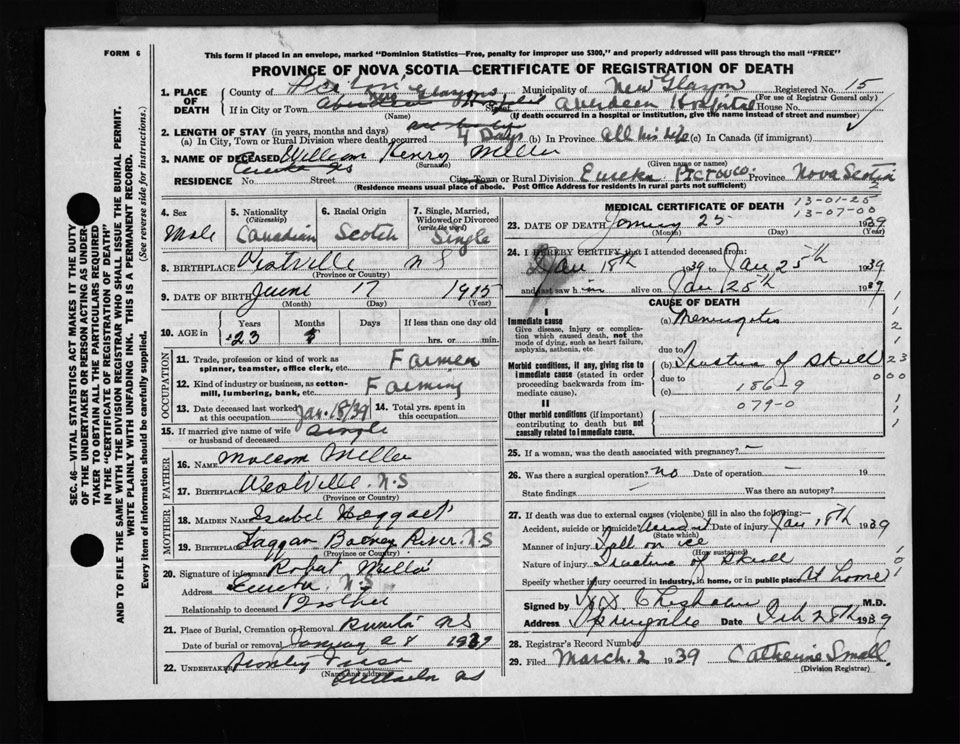 FORM 6
This form if placed in an envelope, marked "Dominion Statistics—Free, penalty for improper use $300," and properly addressed will pass through the mail "FREE"
PROVINCE OF NOVA SCOTIA—CERTIFICATE OF REGISTRATION OF DEATH
SEC. 46—VITAL STATISTICS ACT MAKES IT THE DUTY
OF THE UNDERTAKER OR PERSON ACTING AS UNDER-
TAKER TO OBTAIN ALL THE PARTICULARS REQUIRED
IN THE "CERTIFICATE OF REGISTRATION OF DEATH"
AND TO FILE THE SAME WITH THE DIVISION REGISTRAR WHO SHALL ISSUE THE BURIAL PERMIT.
WRITE PLAINLY WITH UNFADING INK. THIS IS A PERMANENT RECORD.
Every item of information should be carefully supplied. (See reverse side for instructions.)
1. PLACE OF DEATH County of Pictou Municipality of New Glasgow Registered No. 15
(For use of Registrar General only)
If in City or Town New Glasgow Street Aberdeen Hospital House No.
(Name) (If death occurred in a hospital or institution, give the name instead of street and number)
2. LENGTH OF STAY (in years, months and days)
(a) In City, Town or Rural Division where death occurred 7 Days (b) In Province all his life (c) In Canada (if immigrant)
3. NAME OF DECEASED William Henry Miller
(Surname) (Given name or names)
RESIDENCE No. Street City, Town or Rural Division Eureka Pictou Co. Province Nova Scotia
(Residence means usual place of abode. Post Office Address for residents in rural parts not sufficient)
4. Sex Male
5. Nationality (Citizenship) Canadian
6. Racial Origin Scotch
7. Single, Married, Widowed or Divorced (write the word) Single
8. BIRTHPLACE Westville N S
(Province or Country)
9. DATE OF BIRTH June 17 1915
(Month) (Day) (Year)
10. AGE in Years Months Days If less than one day
23 hrs. or min.
OCCUPATION
11. Trade, profession or kind of work as spinner, teamster, office clerk, etc. Farmer
12. Kind of industry or business, as cotton-mill, lumbering, bank, etc. Farming
13. Date deceased last worked at this occupation Jan. 18/39 14. Total yrs. spent in this occupation
15. If married give name of wife or husband of deceased Single
FATHER
16. NAME Malcom Miller
17. BIRTHPLACE Westville. N.S
(Province or Country)
MOTHER
18. MAIDEN NAME Isabel
19. BIRTHPLACE Barney River. N.S
(Province or Country)
20. Signature of informant Robert Miller
Address Eureka N.S
Relationship to deceased Brother
21. Place of Burial, Cremation or Removal Eureka NS
Date of burial or removal January 28 1939
22. UNDERTAKER
(Name and address)
MEDICAL CERTIFICATE OF DEATH
13-01-25
13-07-00
2
23. DATE OF DEATH January 25 1939
(Month) (Day) (Year)
24. I HEREBY CERTIFY that I attended deceased from
Jan 18th 1939 to Jan 25th 1939
and last saw him alive on Jan 25th 1939
CAUSE OF DEATH
I
Immediate cause (a) Meningitis
Give disease, injury or complication which caused death, not the mode of dying, such as heart failure, asphyxia, asthenia, etc.
due to
Morbid conditions, if any, giving rise to immediate cause (stated in order proceeding backwards from immediate cause). (b) Fracture of Skull
due to
(c) 186-9
079-0
II
Other morbid conditions (if important) contributing to death but not causally related to immediate cause.
25. If a woman, was the death associated with pregnancy? —
26. Was there a surgical operation? no Date of operation — 19
State findings — Was there an autopsy?
27. If death was due to external causes (violence) fill in also the following:—
Accident, suicide or homicide Accident Date of injury Jan 18th 1939
(State which)
Manner of injury Fall on ice
(How sustained)
Nature of injury Fracture of Skull
Specify whether injury occurred in industry, in home, or in public place At home
Signed by Chisholm M.D.
Address Date Feb 28th 1939
28. Registrar's Record Number
29. Filed March. 2 1939 Catherine Small.
(Division Registrar)